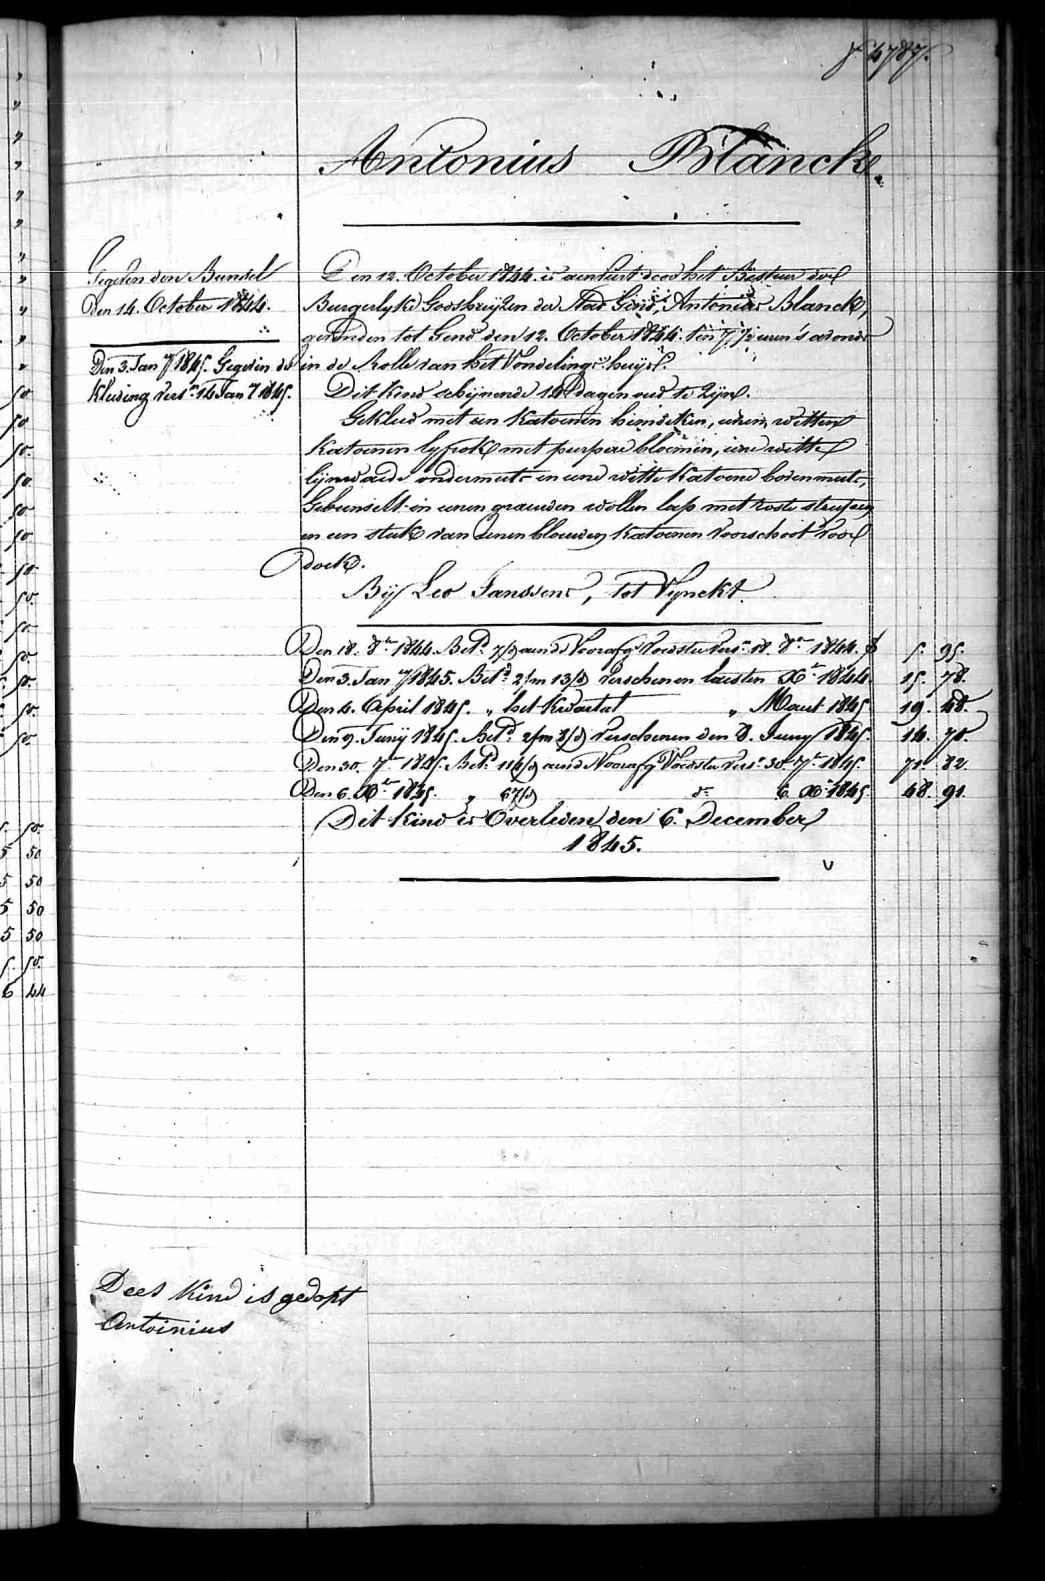 4787.
Antonius Blancke.
Gegeven den Bunsel
Den 14. October 1844.
Den 3. Jan 7 1845. Gegeven de
Kleeding vers.n 14 Jan 7 1845.
Den 12. October 1844. is aenveird door het Bestuer der
Burgerlyke Godshuyzen der Stad Gend, Antonius Blancke,
gevonden tot Gend den 12. October 1844. ten 7 1/2 uren 's avonds
in de Rolle van het Vondelings huys.
Dit kind schynende 14 dagen oud te zyn.
Gekleed met een Katoenen hemdeken, eenen witten
Katoenen lyfrok met purpere bloemen, eene witte
lynwaede ondermuts en eene witte katoene bovenmuts,
Gebunselt in eenen grauwen wollen lap met roste streepen
en een stuk van eenen blauwen katoenen voorschoot voor
doek.
By Leo Janssens, tot Vynckt.
Den 18. 8.r 1844. Bet.d 7/d aen de Voorafg. Voedster vers. 18. 8.r 1844. f 5. 95.
Den 3. Jan 7 1845. Bet.d 2/m 13/d verschenen laesten X.r 1844. 15. 78.
Den 4. April 1845. " het Kwartat " Maert 1845. 19. 48.
Den 9. Juny 1845. Bet.d 2/m 8/d verschenen den 8. Juny 1845. 14. 70.
Den 30. 7.r 1845. Bet.d 114/d aen de Voorafg. Voedster vers. 30. 7.r 1845. 71. 82.
Den 6. X.r 1845. " 67/d d.o 6. X.r 1845. 48. 91.
Dit kind is Overleden den 6. December
1845.
Dees Kind is gedopt
Antoinius
5 50
5 50
5 50
5 50
5. 50.
6 44